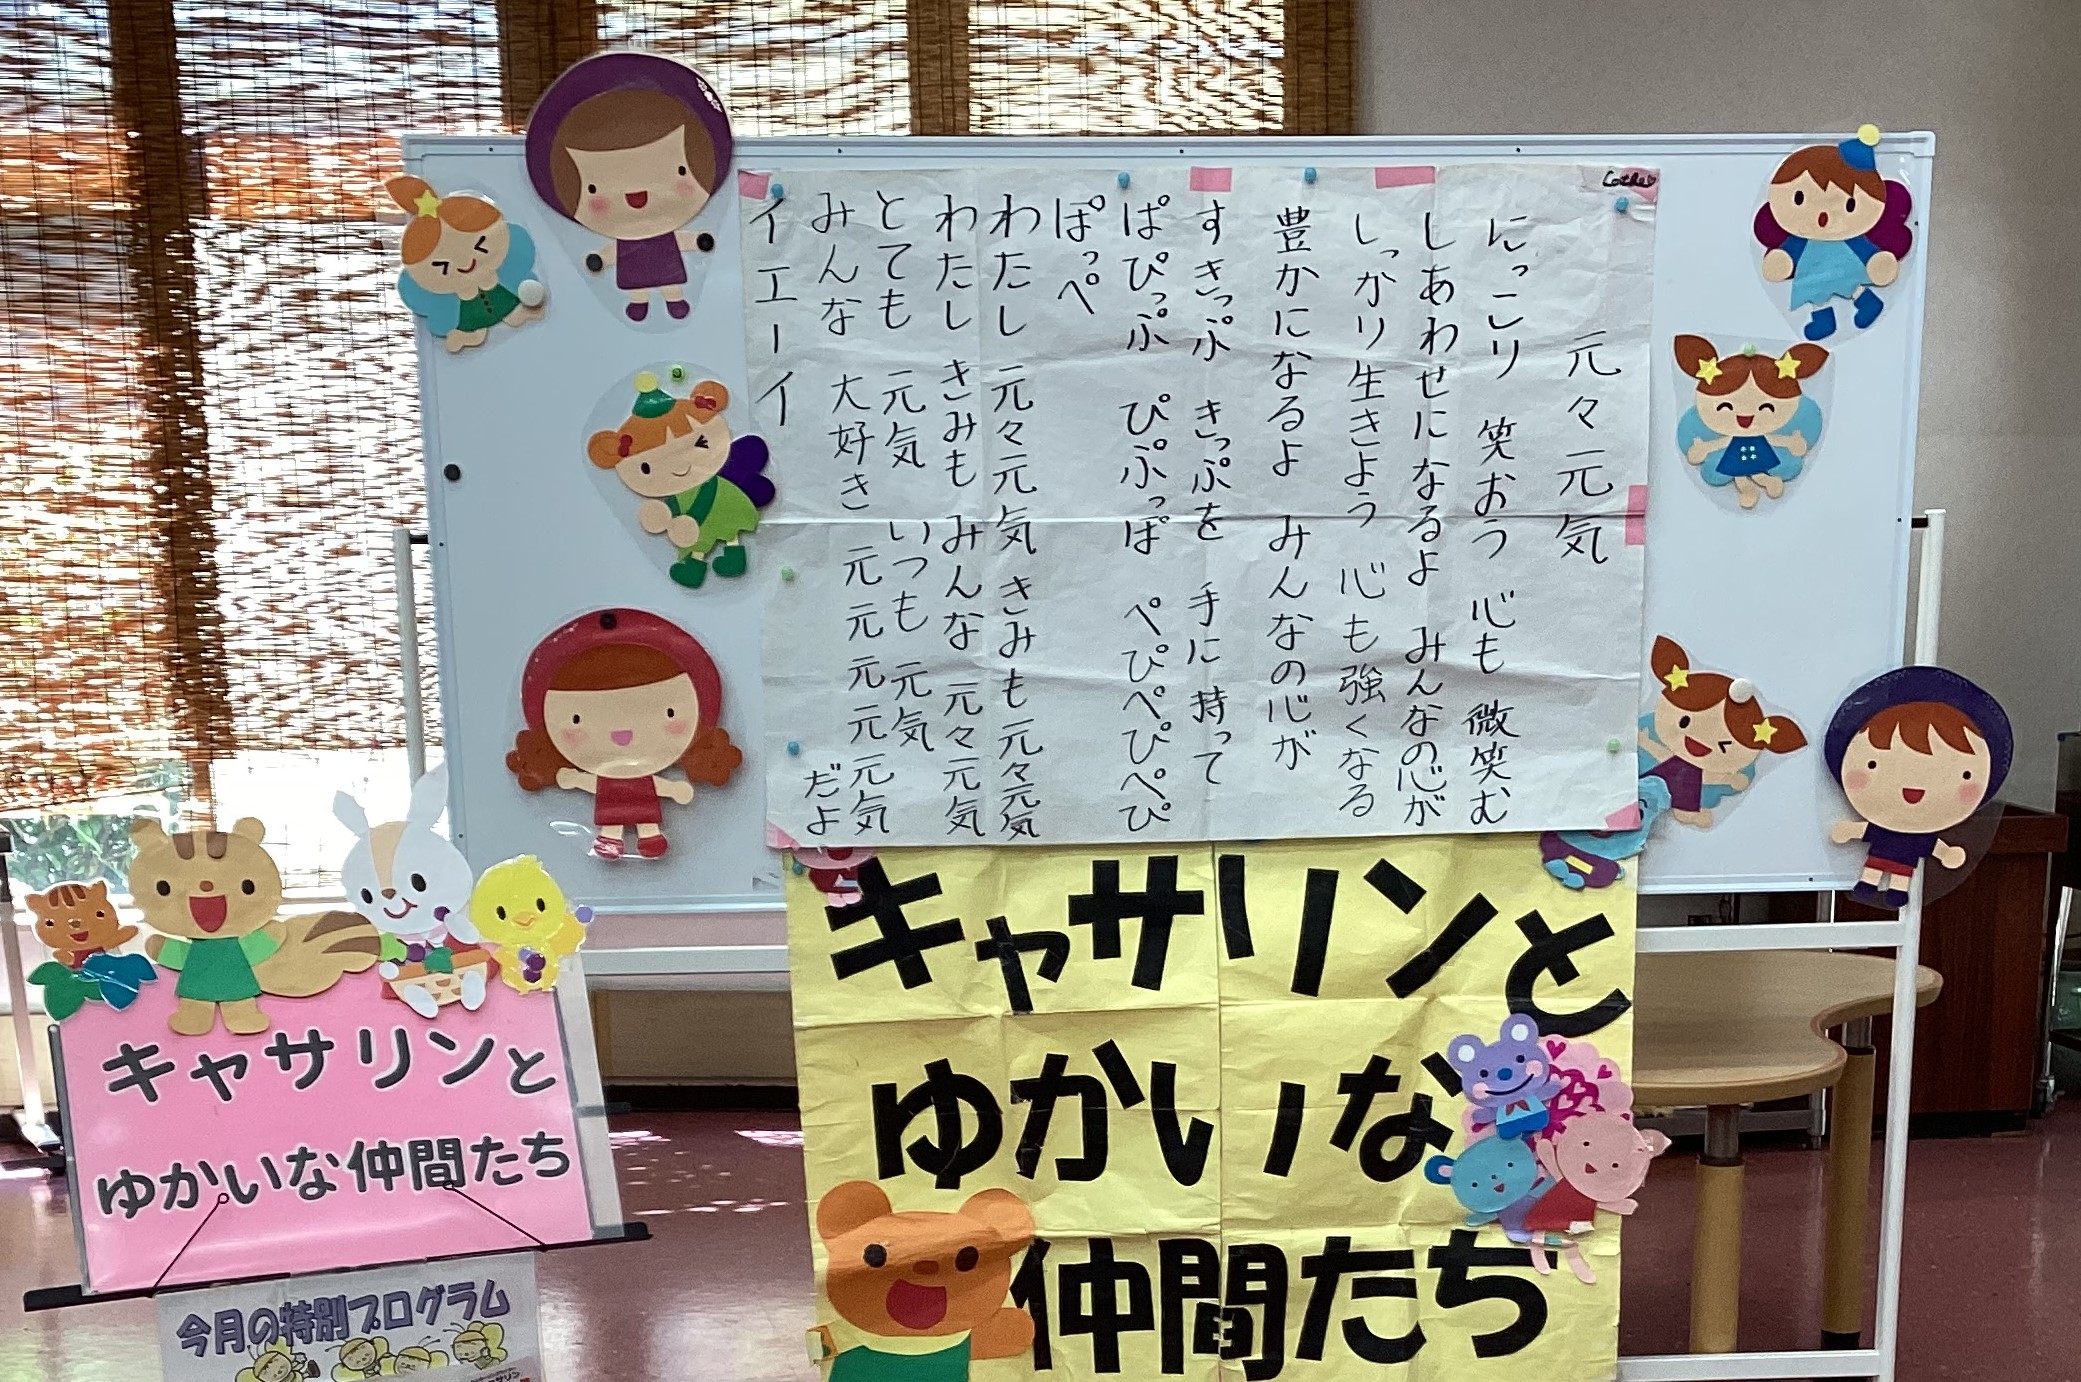 元々元気
にっこり 笑おう 心も 微笑む
しあわせになるよ みんなの心が
しっかり生きよう 心も強くなる
豊かになるよ みんなの心が
すきっぷ きっぷを 手に持って
ぱぴっぷ ぴぷっぱ ぺぴぺぴぺぴ
ぽっぺ
わたし 元々元気 きみも 元々元気
わたし きみも みんな 元々元気
とても 元気 いつも 元気
みんな 大好き 元元元元元気
だよ
イエーイ
キャサリンと
ゆかいな
仲間たち
キャサリンと
ゆかいな仲間たち
今月の特別プログラム